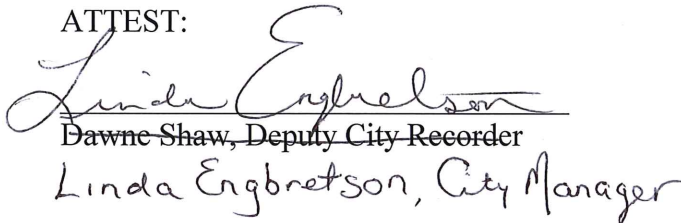 ATTEST:
Linda Engbretson
Dawne Shaw, Deputy City Recorder
Linda Engbretson, City Manager